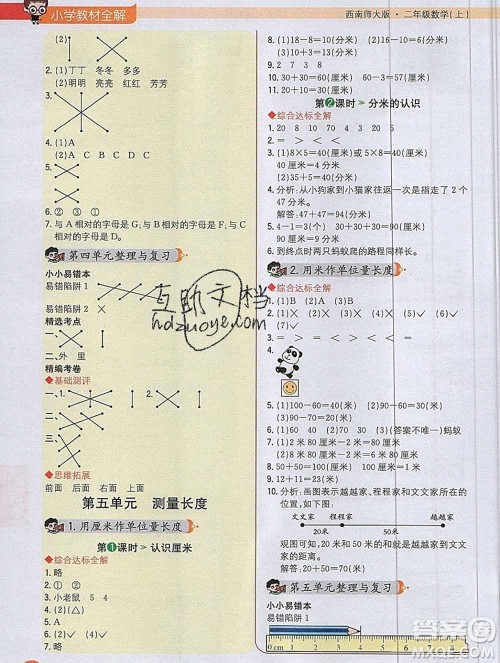 小学教材全解
西南师大版·二年级数学(上)
(2)
2. (1)丁丁 冬冬 多多
(2)明明 亮亮 红红 芳芳
3.
4. (1)A
(2)A C D C D
5.
6. ② ③ ①
7. 与A相对的字母是G;与B相对的字母是F;与C
相对的字母是D。
第四单元整理与复习
小小易错本
易错陷阱1
精选考点
一、
二、外 里
精编考卷
◆基础测评
一、 二、1. 2.
三、
◆思维拓展
前面 后面 右面 上面
第五单元 测量长度
1. 用厘米作单位量长度
第1课时 > 认识厘米
◆综合达标全解
1. 略
2. ④
3. 小老鼠 5 4
4. (2)(△)
5. A
6. (2)✓
7. 略
8. (1)18-8=10(厘米) (2)10-4=6(厘米)
9.
10. 30+30=60(厘米)
11. 20+20=40(厘米)
第2课时 > 分米的认识
◆综合达标全解
1. 20 8 10 5 70 4
2. = > < < = >
3. (1)8×5=40(厘米)
(2)35+5=40(厘米)
4. 分析:从小狗家到小猫家往返一次是指走了2个
47米。
解答:47+47=94(米)
5. 到终点时两只蚂蚁爬的路程同样长。
2. 用米作单位量长度
◆综合达标全解
1. (1)B (2)A
2. (1)× (2)✓ (3)× (4)× (5)✓
3. < > > = < =
4.
5. (1)100-60=40(米)
6. (1)60 40 (2)70 30 (3)(答案不唯一)蚂蚁
7. (1)10分米-2分米=8分米
(2)100厘米-20厘米=80厘米
8. 50+50=100(厘米) 100厘米=1米
9. 12+11=23(米)
10. 分析:画图表示越越家、程程家和文文家所在的位
置,如下图。
文文家 程程家 越越家
20米 50米
观图可知,20米和50米的和就是越越家和文文家
的距离。
解答:20+50=70(米)
第五单元整理与复习
小小易错本
易错陷阱1
0cm 1 2 3 4 5 6 7
互助文档
hdzuoye.com